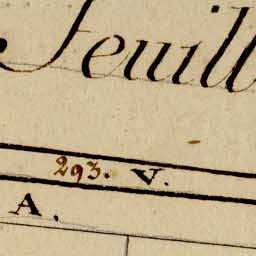 Feuill
293. V.
A.